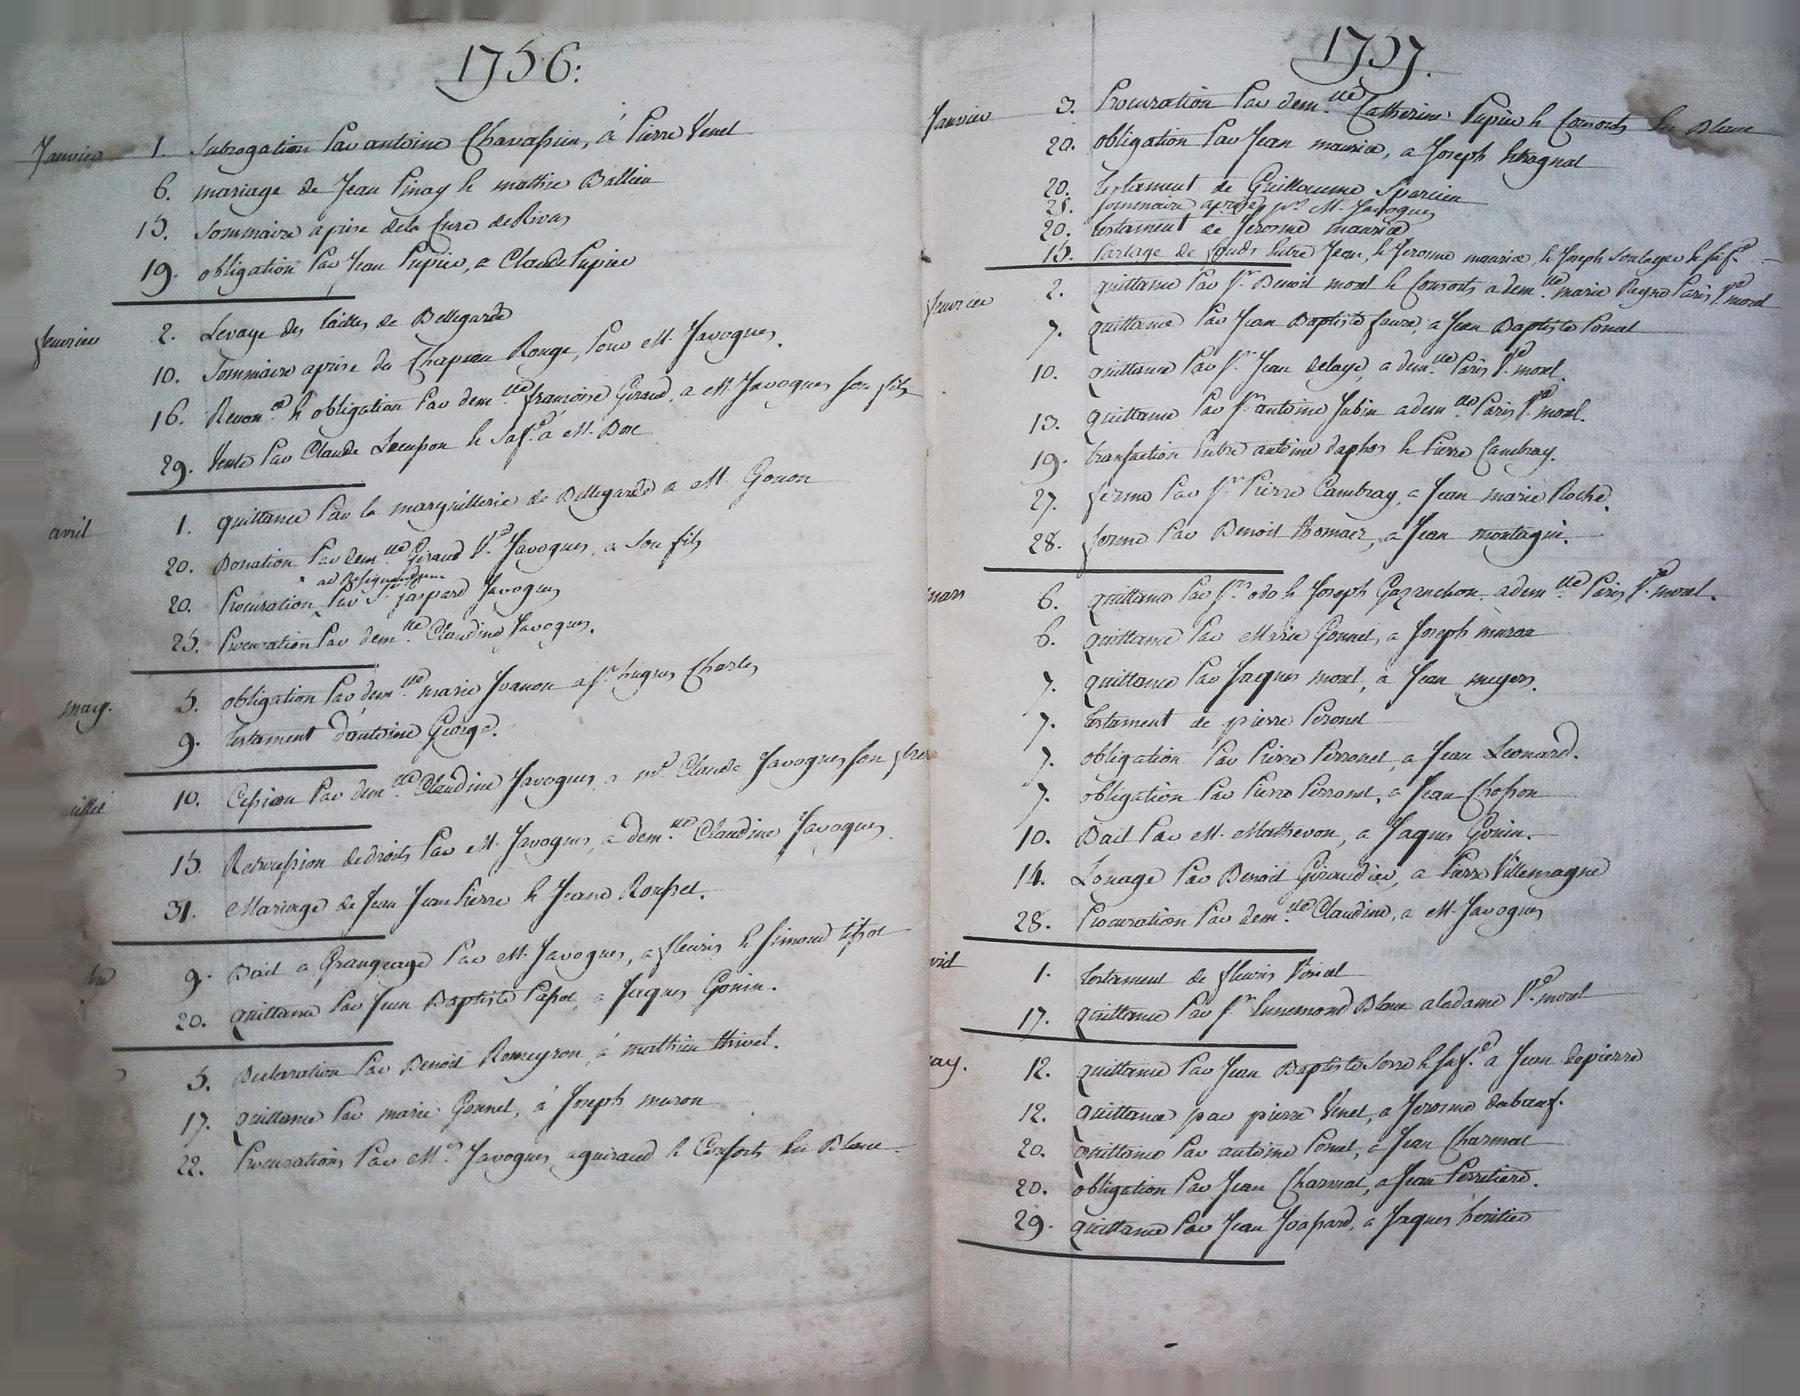 1756:
Janvier 1. Subrogation Par antoine Chavassieu, à Pierre Venet
6. mariage de Jean Pinay & mathie Ballieu
15. Sommaire aprise de la Cure de Rivas
19. obligation Par Jean Pupier, a Claude Pupier
feuvrier 2. Levage des tailles de Bellegarde
10. Sommaire aprise du Chapeau Rouge, Pour M. Javogues.
16. Renon.ce & obligation Par dem.lle francoise Giraud, a M. Javogues son fils
29. Vente Par Claude & Saf.e a M. Boe
avril 1. quittance Par la marguillerie de Bellegarde a M. Gonon
20. Donation Par dem.lle Giraud V.e Javogues, a Son fils
ad Resignandum
20. Procuration Par S.r gaspard Javogues
25. Procuration Par dem.lle Claudine Javogues.
may. 5. obligation Par dem.lle marie Juanon a s.r hugues Charles
9. testament d'antoine George.
uillet 10. Cession Par dem.lle Claudine Javogues, a m.r Claude Javogues son frer
15. Retrocession de droits Par M. Javogues, a dem.lle Claudine Javogues
31. Mariage de Jean Jean Pierre & Jeane Rousset.
bre 9. Bail a Grangeage Par M. Javogues, a fleuris & Simond tissot
20. quittance Par Jean Baptiste Passot, a Jacques Gonin.
5. Declaration Par Benoit Romeyron, à mathieu thivel.
17. quittance Par marie Gonnet, à Joseph muron
22. Procurations Par M.rs Javogues aguiraud & Consorts En Blanc
1757.
Janvier 3. Procuration Par dem.lle Catherine Pupier & Consorts En Blanc
20. obligation Par Jean maurice, a Joseph
20. testament de Guillaume
21. Sommaire aprise p.r M. Javogues
20. testament de Jerome maurice
15. Partage de fonds Entre Jean, & Jerome maurice & Joseph Soulager & Saf.e
feuvrier 2. quittance Par s.r Benoit morel & Consorts a dem.lle marie Reyne Paris V.e morel
7. quittance Par Jean Baptiste faure, a Jean Baptiste Ponset
10. quittance Par s.r Jean Delaye, a dem.lle Paris V.e morel.
13. quittance Par s.r antoine Jubin a dem.lle Paris V.e morel.
19. transaction Entre antoine daphos & Pierre Cambray.
27. ferme Par s.r Pierre Cambray, a Jean marie Roche.
28. ferme Par Benoit thomaez, a Jean montagni.
mars 6. quittance Par s.rs odo & Joseph Gazanchon a dem.lle Paris V.e morel.
6. quittance Par Marie Gonnet, a Joseph muron
7. quittance Par Jacques morel, a Jean muyers.
7. testament de pierre Peronet
7. obligation Par Pierre Perronet, a Jean Leonard.
7. obligation Par Pierre Perronet, a Jean Chosson
10. Bail Par M. Mathevon, a Jaques Gonin.
14. Louage Par Benoit Giraudier, a Pierre Villemagne
28. Procuration Par dem.lle Claudine, a M. Javogues
vril 1. testament de fleuris Venet
17. quittance Par s.r Ennemond Blanc a la dame V.e morel
ay. 12. quittance Par Jean Baptiste Serre & Saf.e a Jean depierre
12. quittance par pierre Venet, a Jerosme duboeuf.
20. quittance Par antoine Ponset, a Jean Charmet
20. obligation Par Jean Charmet, a Jean Perretiere.
29. quittance Par Jean Joassard, a Jaques heritier